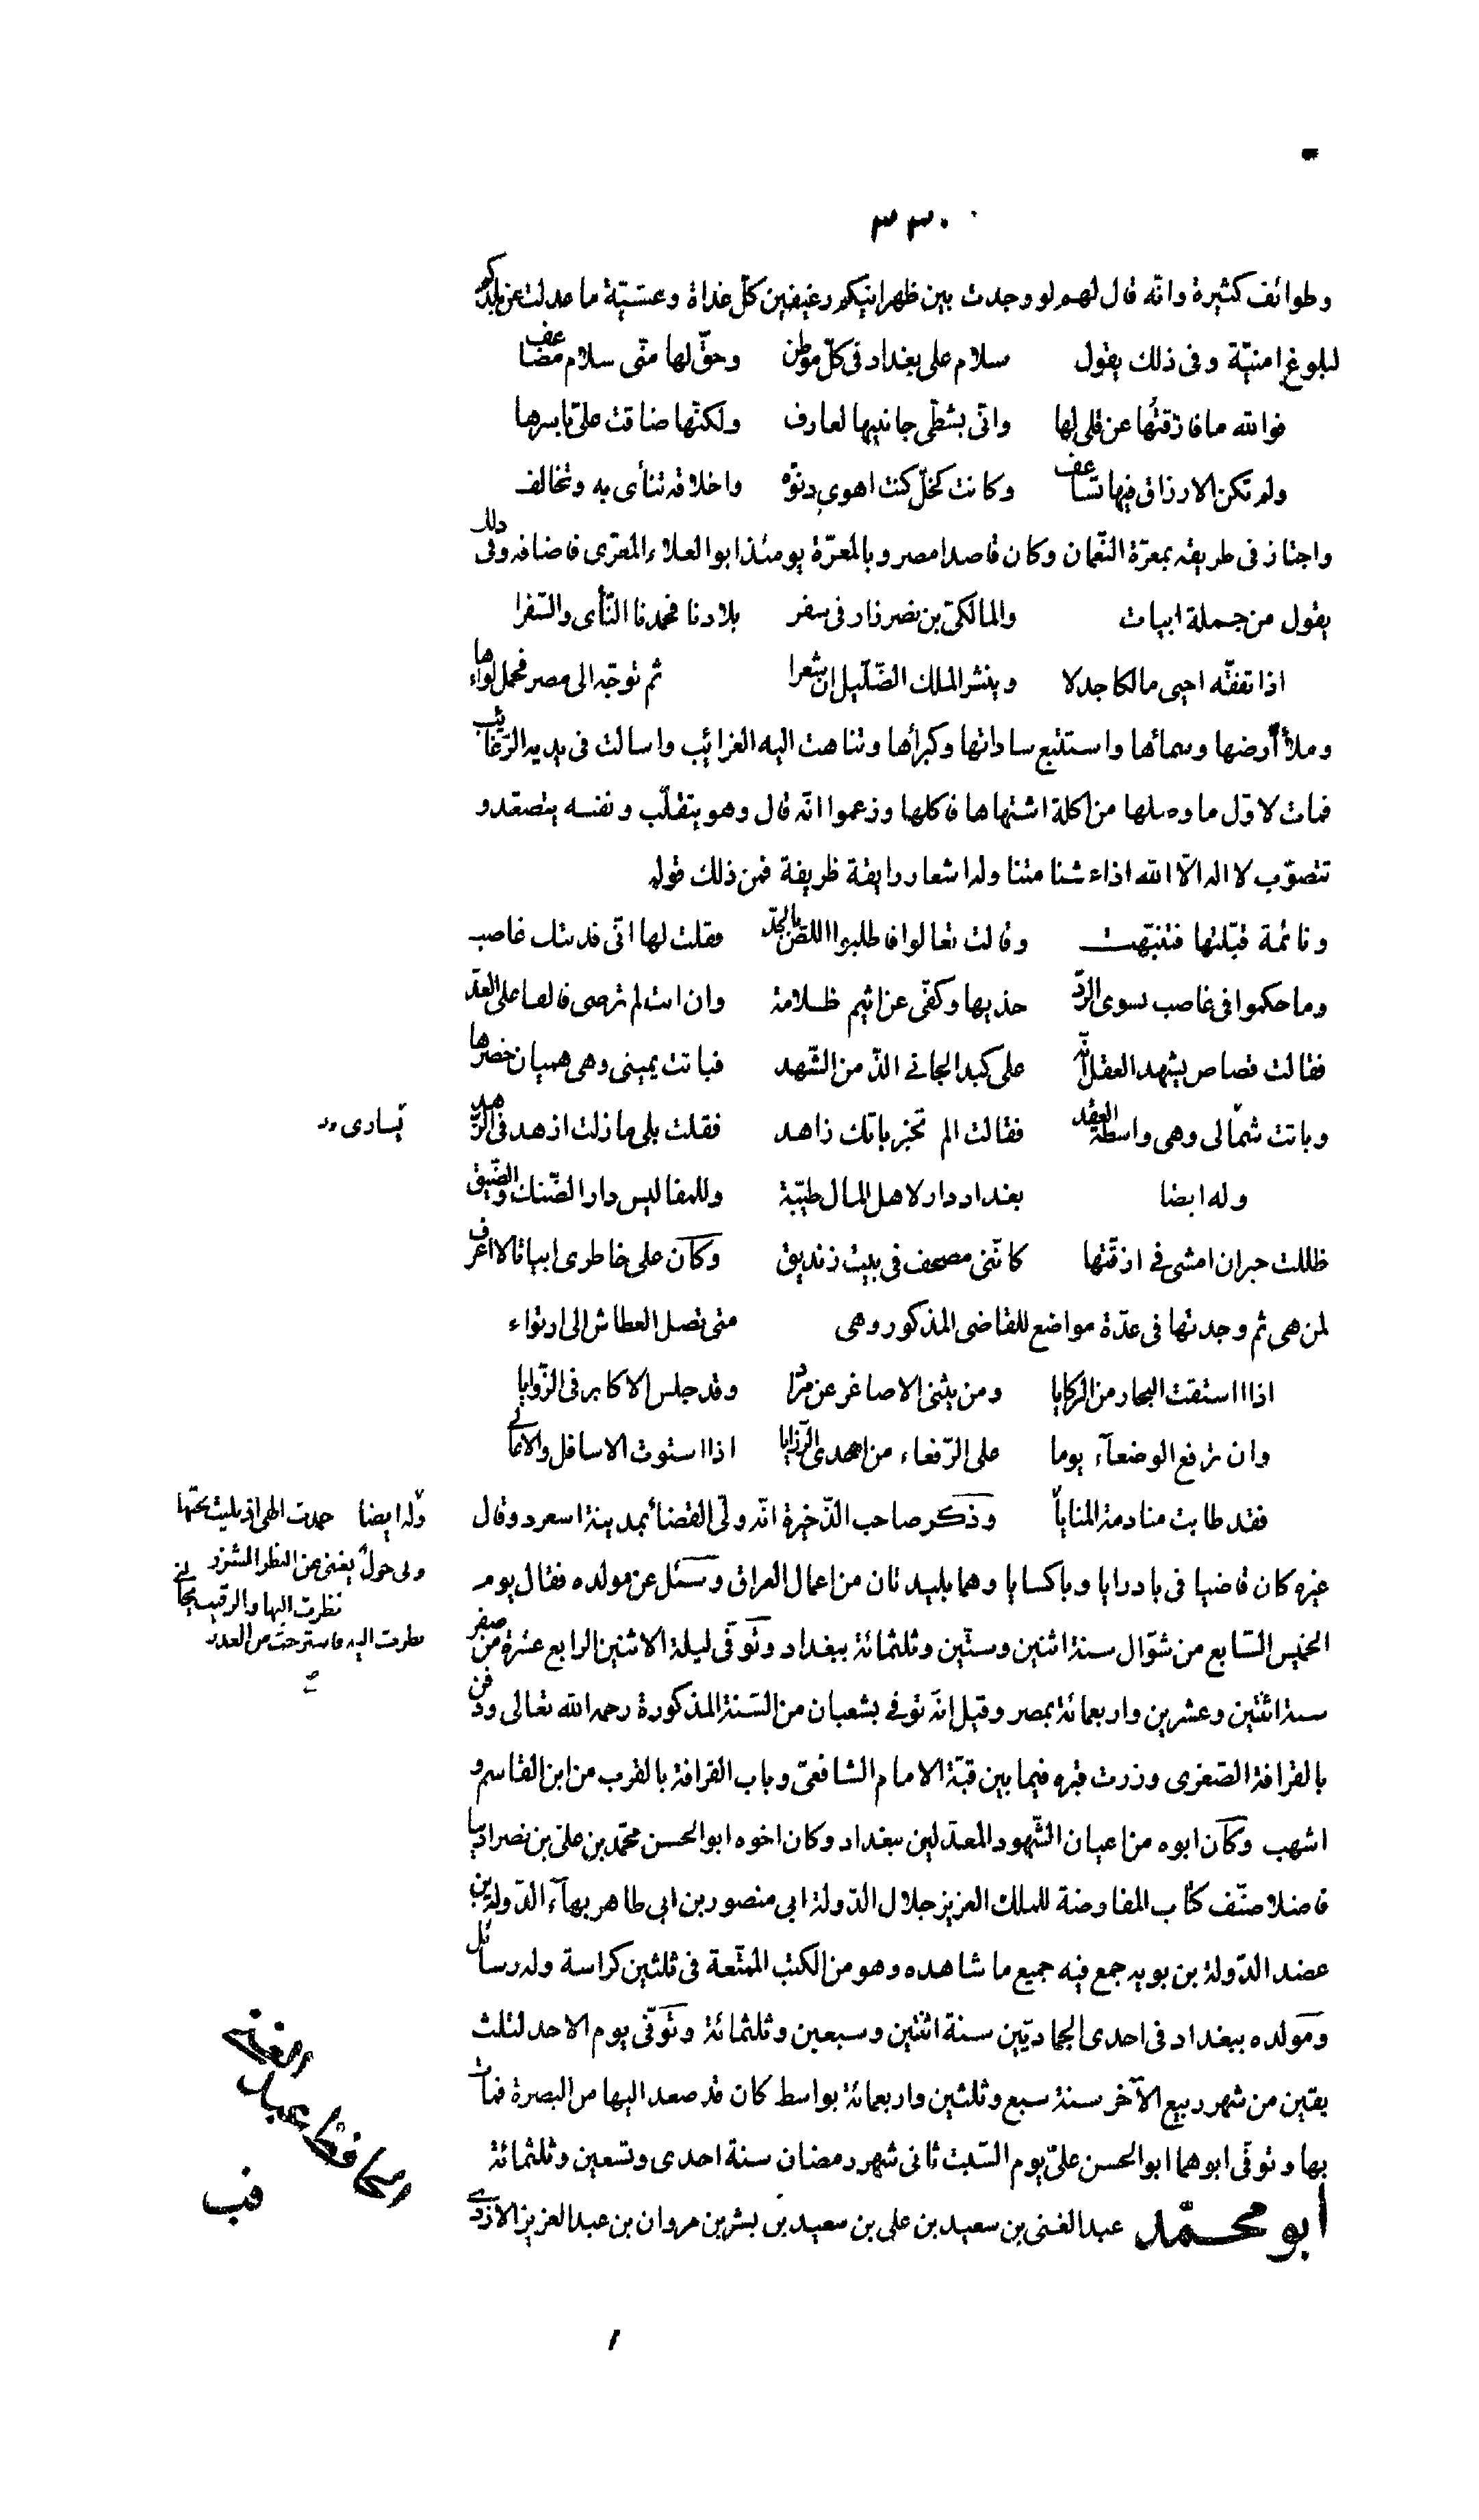 ٣٣٠
وطوائف كثيرة وانّه قال لهم لو وجدت بين ظهرانيكم رغيفين كلّ غداة وعشيّة ما عدلت عن بلدكم
لبلوغ امنيّة وفى ذلك يقول سلام على بغداد فى كلّ موطن وحقّ لها منّى سلام مضاعف
فوالله ما فارقتُها عن قلى لها وانّى بشطّى جانبيها لعارف ولكنّها ضاقت علىّ باسرها
ولم تكن الارزاق فيها تساعف وكانت كخلّ كنت اهوى دنوّه واخلاقه تنأى به وتخالف
واجتاز فى طريقه بمعرّة النّعمان وكان قاصدا مصر وبالمعرّة يومئذ ابو العلاء المعرّى فاضافه وفى ذلك
يقول من جملة ابيات والمالكىّ بن نصر زار فى سفر بلادنا فحمدنا النّأى والسّفرا
اذا تفقّه احيى مالكا جدلا وينشر الملك الضّلّيل ان شعرا ثم توجّه الى مصر فحمل لواءها
وملأ أرضها وسمائها واستتبع ساداتها وكبرأها وتناهت اليه الغرائب واسالت فى يديه الرّغائب
فمات لاوّل ما وصلها من اكلة اشتهاها فاكلها وزعموا انّه قال وهو يتقلّب ونفسه يتصعّد و
تتصوّب لا اله الّا الله اذا عشنا متنا وله اشعار رايقة ظريفة فمن ذلك قوله
ونائمة قبّلتها فتنبّهت وقالت تعالوا فاطلبوا اللّصّ بالحدّ فقلت لها انّى فديتك غاصب
وما حكموا فى غاصب بسوى الردّ خذيها وكفّى عن اثيم ظلامة وان انت لم ترضى فالفا على العدّ
فقالت قصاص يشهد العقل انّه على كبد الجانى الذّ من الشّهد فباتت يمينى وهى هميان خصرها
وباتت شمالى وهى واسطة العقد فقالت الم تخبر بانّك زاهد فقلت بلى ما زلت ازهد فى الزّهد
يسارى
وله ايضا بغداد دار لاهل المال طيّبة وللمفاليس دار الضّنك والضّيق
ظللت حيران امشى فى ازقّتها كانّنى مصحف فى بيت زنديق وكان على خاطرى ابيات لا اعرف
لمن هى ثم وجدتها فى عدّة مواضع للقاضى المذكور وهى متى تصل العطاش الى ارتواء
اذا استقت البحار من الركايا ومن يثنى الاصاغر عن مراد وقد جلس الاكابر فى الزّوايا
وان ترفع الوضعآء يوما على الرّفعاء من احدى الرّزايا اذا استوت الاسافل والاعالى
فقد طابت منادمة المنايا وذكر صاحب الذّخيرة انّه ولّى القضاء بمدينة اسعرد وقال
وله ايضا حمدت الهى اذ بليت بحبّها
وبى حول يغنى عن النظر الشزر
نظرت اليها والرقيب يخالنى
نظرت اليه فاسترحت من العذر
غيره كان قاضيا فى بادرايا وباكسايا وهما بليدتان من اعمال العراق وسئل عن مولده فقال يوم
الخميس السّابع من شوّال سنة اثنين وستّين وثلثمائة ببغداد وتوفّى ليلة الاثنين الرابع عشرة من صفر
سنة اثنتين وعشرين واربعمائة بمصر وقيل انّه توفى بشعبان من السّنة المذكورة رحمه الله تعالى ودفن
بالقرافة الصّغرى وزرت قبره فيما بين قبّة الامام الشافعىّ وباب القرافة بالقرب من ابن القاسم و
اشهب وكان ابوه من اعيان الشّهود المعدّلين ببغداد وكان اخوه ابو الحسن محمّد بن علىّ بن نصر اديبا
فاضلا صنّف كتاب المفاوضة للملك العزيز جلال الدّولة ابى منصور بن ابى طاهر بهآء الدّولة بن
عضد الدّولة بن بويه جمع فيه جميع ما شاهده وهو من الكتب الممتّعة فى ثلثين كراسة وله رسائل
ومولده ببغداد فى احدى الجماديّين سنة اثنتين وسبعين وثلثمائة وتوفّى يوم الاحد لثلث
بقين من شهر ربيع الآخر سنة سبع وثلثين واربعمائة بواسط كان قد صعد اليها من البصرة فمات
بها وتوفّى ابوهما ابو الحسن علىّ يوم السّبت ثانى شهر رمضان سنة احدى وتسعين وثلثمائة
الحافظ عبد الغنى
أبو محمّد عبد الغنى بن سعيد بن على بن سعيد بن بشر بن مروان بن عبد العزيز الازدى